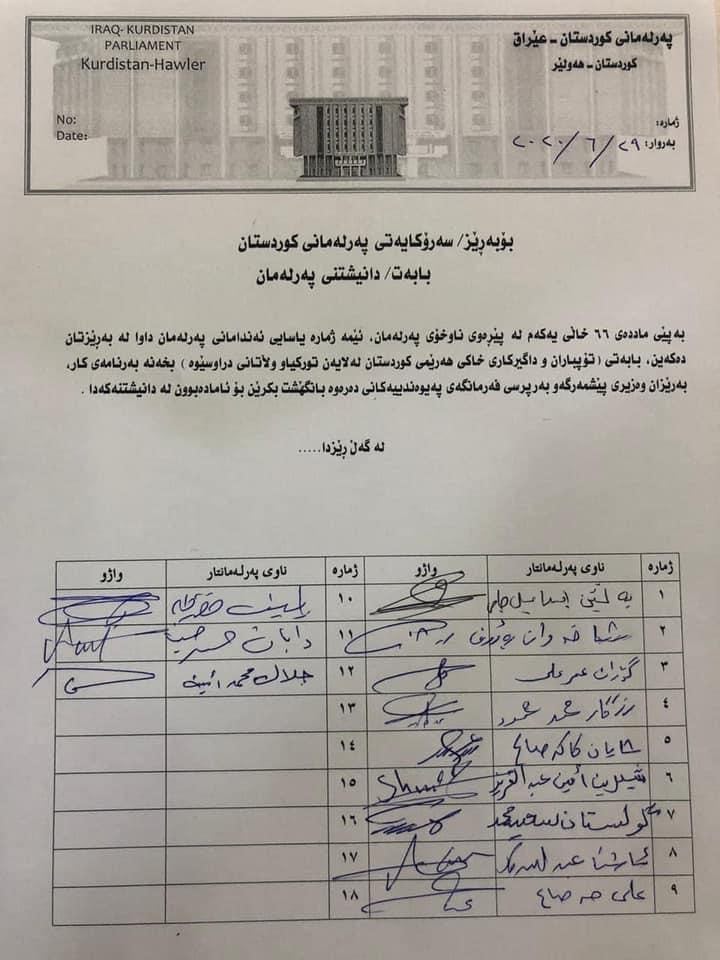 IRAQ- KURDISTAN
PARLIAMENT
Kurdistan-Hawler
No:
Date:
پەرلەمانی کوردستان - عێراق
کوردستان - هەولێر
ژمارە:
بەروار: ٢٩/ ٦ / ٢٠٢٠
بۆبەڕێز/ سەرۆکایەتی پەرلەمانی کوردستان
بابەت/ دانیشتنی پەرلەمان
بەپێی ماددەی ٦٦ خاڵی یەکەم لە پێڕەوی ناوخۆی پەرلەمان، ئێمە ژمارە یاسایی ئەندامانی پەرلەمان داوا لە بەڕێزتان
دەکەین، بابەتی ( تۆپباران و داگیرکاری خاکی هەرێمی کوردستان لەلایەن تورکیاو وڵاتانی دراوسێوە ) بخەنە بەرنامەی کار،
بەڕێزان وەزیری پێشمەرگەو بەرپرسی فەرمانگەی پەیوەندییەکانی دەرەوە بانگهێشت بکرێن بۆ ئامادەبوون لە دانیشتنەکەدا .
لە گەڵ ڕێزدا.....
ژمارە ناوی پەرلەمانتار واژو ژمارە ناوی پەرلەمانتار واژو
١ اسماعیل ١٠
٢ ١١ دابان
٣ گۆران عمر علی ١٢ جلال محمد امین
٤ رزگار محمد محمود ١٣
٥ شایان کاکە صالح ١٤
٦ شیرین امین عبدالعزیز ١٥ Shni
٧ گولستان سعید محمد ١٦
٨ ١٧
٩ علی حمە صالح ١٨